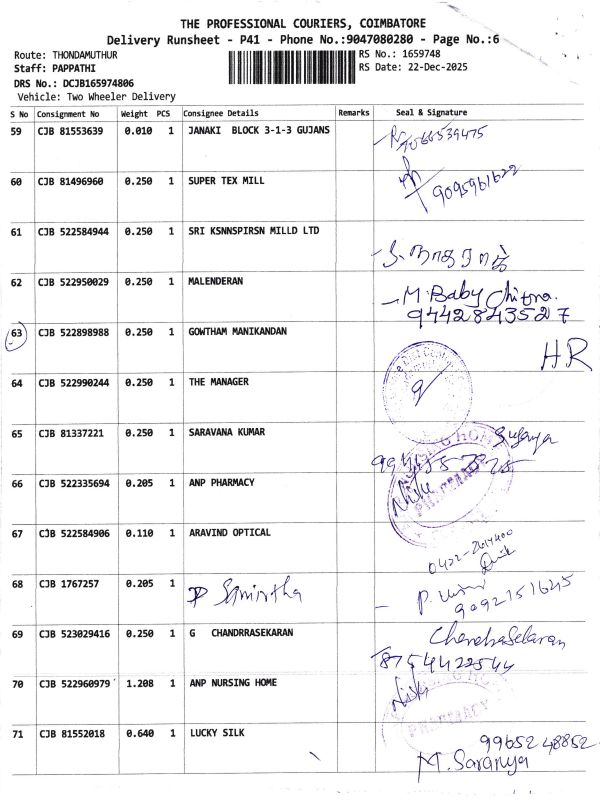 THE PROFESSIONAL COURIERS, COIMBATORE
Delivery Runsheet - P41 - Phone No.:9047080280 - Page No.:6
Route: THONDAMUTHUR
RS No.: 1659748
Staff: PAPPATHI
RS Date: 22-Dec-2025
DRS No.: DCJB165974806
Vehicle: Two Wheeler Delivery
S No Consignment No Weight PCS Consignee Details Remarks Seal & Signature
59 CJB 81553639 0.010 1 JANAKI BLOCK 3-1-3 GUJANS
60 CJB 81496960 0.250 1 SUPER TEX MILL 9095961622
61 CJB 522584944 0.250 1 SRI KSNNSPIRSN MILLD LTD
62 CJB 522950029 0.250 1 MALENDERAN M. Baby Chitra.
9442843527
63 CJB 522898988 0.250 1 GOWTHAM MANIKANDAN HR
64 CJB 522990244 0.250 1 THE MANAGER
65 CJB 81337221 0.250 1 SARAVANA KUMAR Suganya
66 CJB 522335694 0.205 1 ANP PHARMACY PHARMACY
67 CJB 522584906 0.110 1 ARAVIND OPTICAL
68 CJB 1767257 0.205 1
9092151645
69 CJB 523029416 0.250 1 G CHANDRRASEKARAN Chandraselaran
8754422544
70 CJB 522960979 1.208 1 ANP NURSING HOME PHARMACY
71 CJB 81552018 0.640 1 LUCKY SILK 9965248852
M. Saranya